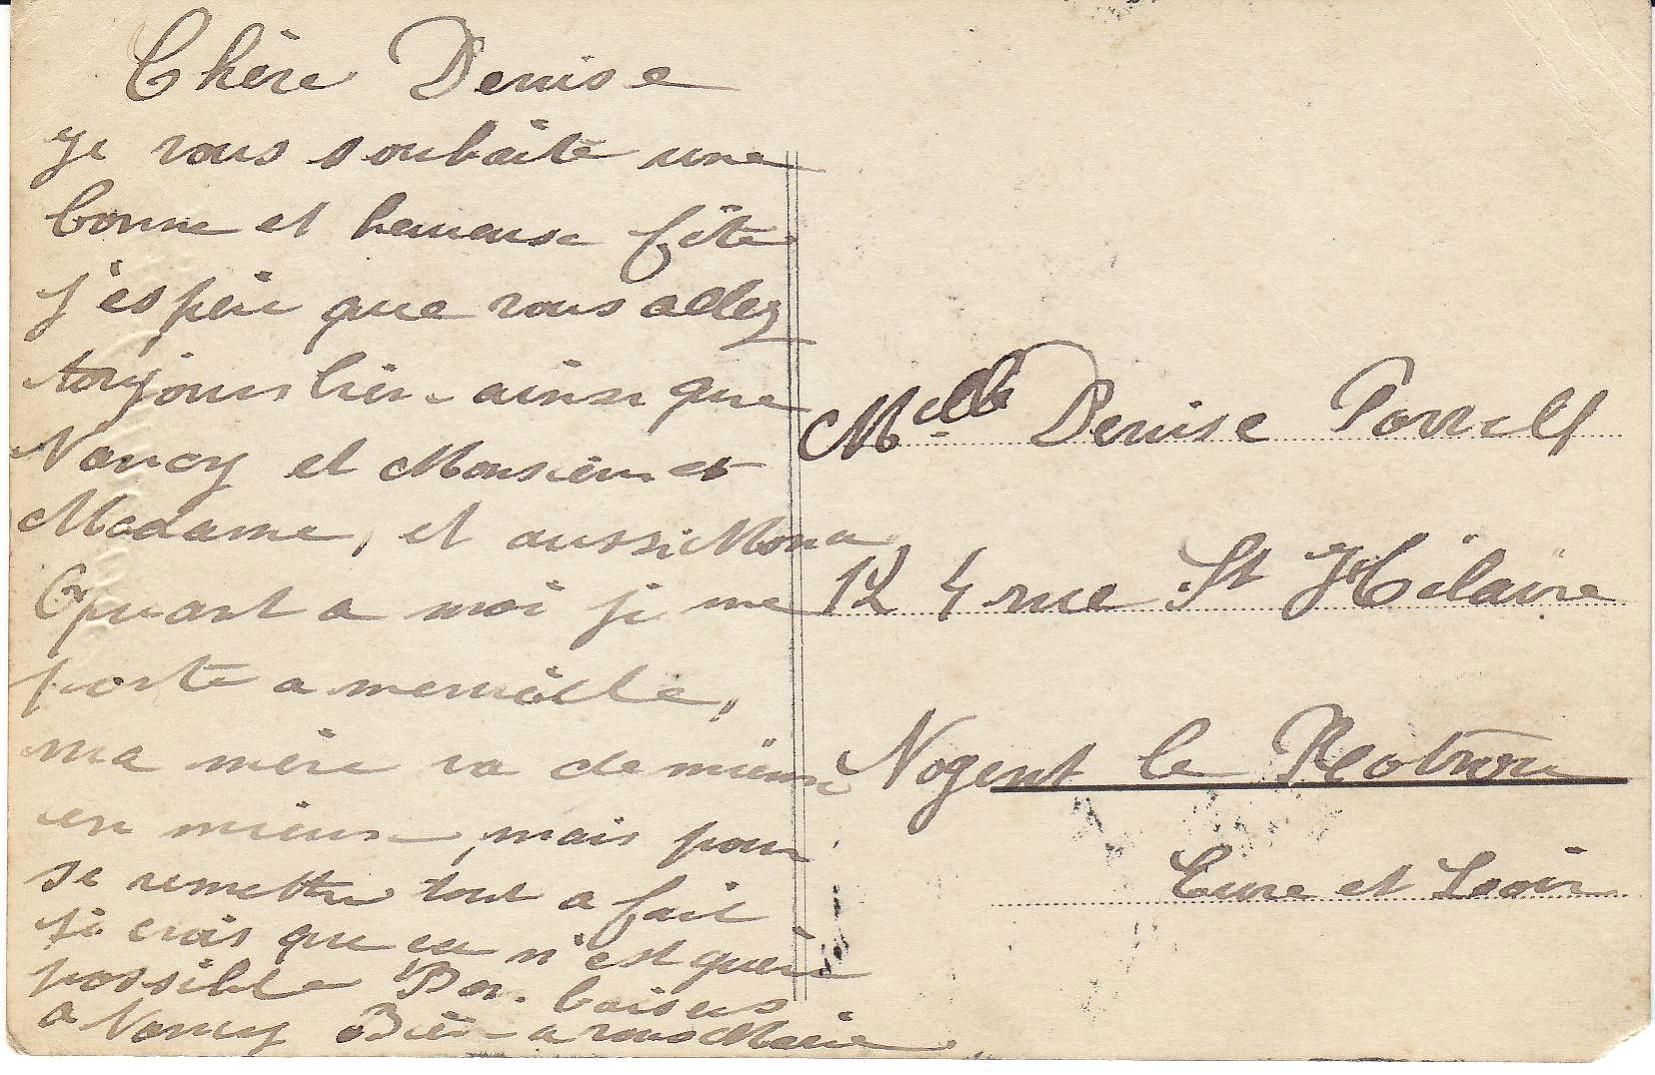 Chère Denise
Je vous souhaite une
bonne et heureuse fête
j'espère que vous allez
toujours bien ainsi que
Nancy et Monsieur et
Madame, et aussi Mona
Quant a moi je me
porte a merveille,
ma mère va de mieux
en mieux, mais pour
se remettre tout a fait
je crois que ca n'est guère
possible Bon baisers
a Nancy Bien a vous Marie
Melle Denise
124 rue St Hilaire
Nogent le Rotrou
Eure et Loir